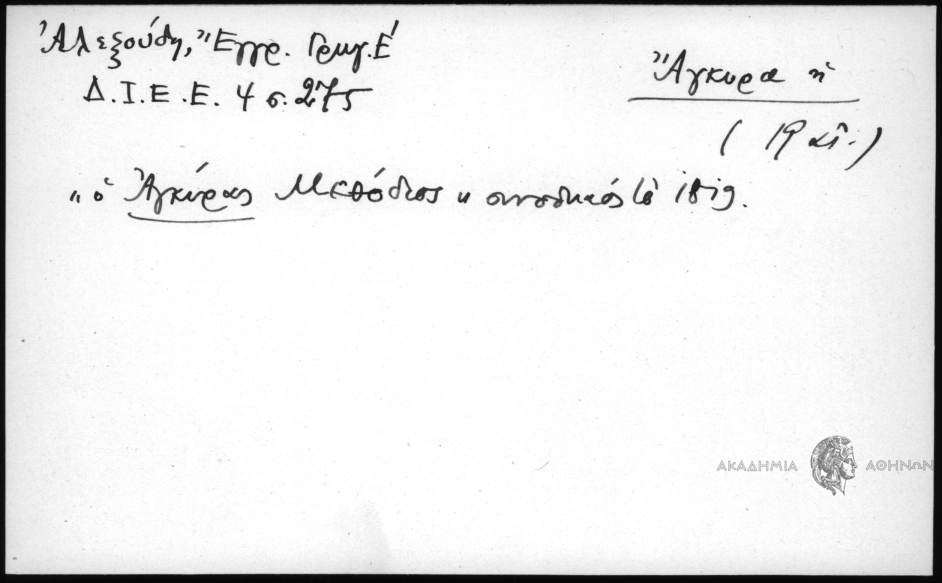 Ἀλεξούδη, Ἔγγρ. Γρηγ. Ε'
Δ.Ι.Ε.Ε. 4 σ. 275
Ἄγκυρα ἡ
(19 αἰ.)
"ὁ Ἀγκύρας Μεθόδιος " συνοδικός τῷ 1819.
ΑΚΑΔΗΜΙΑ ΑΘΗΝΩΝ